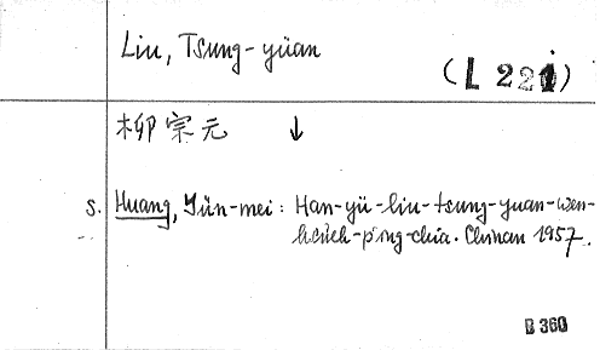 Liu, Tsung-yüan
(L 221)
柳宗元 ↓
s. Huang, Yün-mei: Han-yü-liu-tsung-yuan-wen-
hsüeh-p'ing-chia. Chinan 1957.
B 360